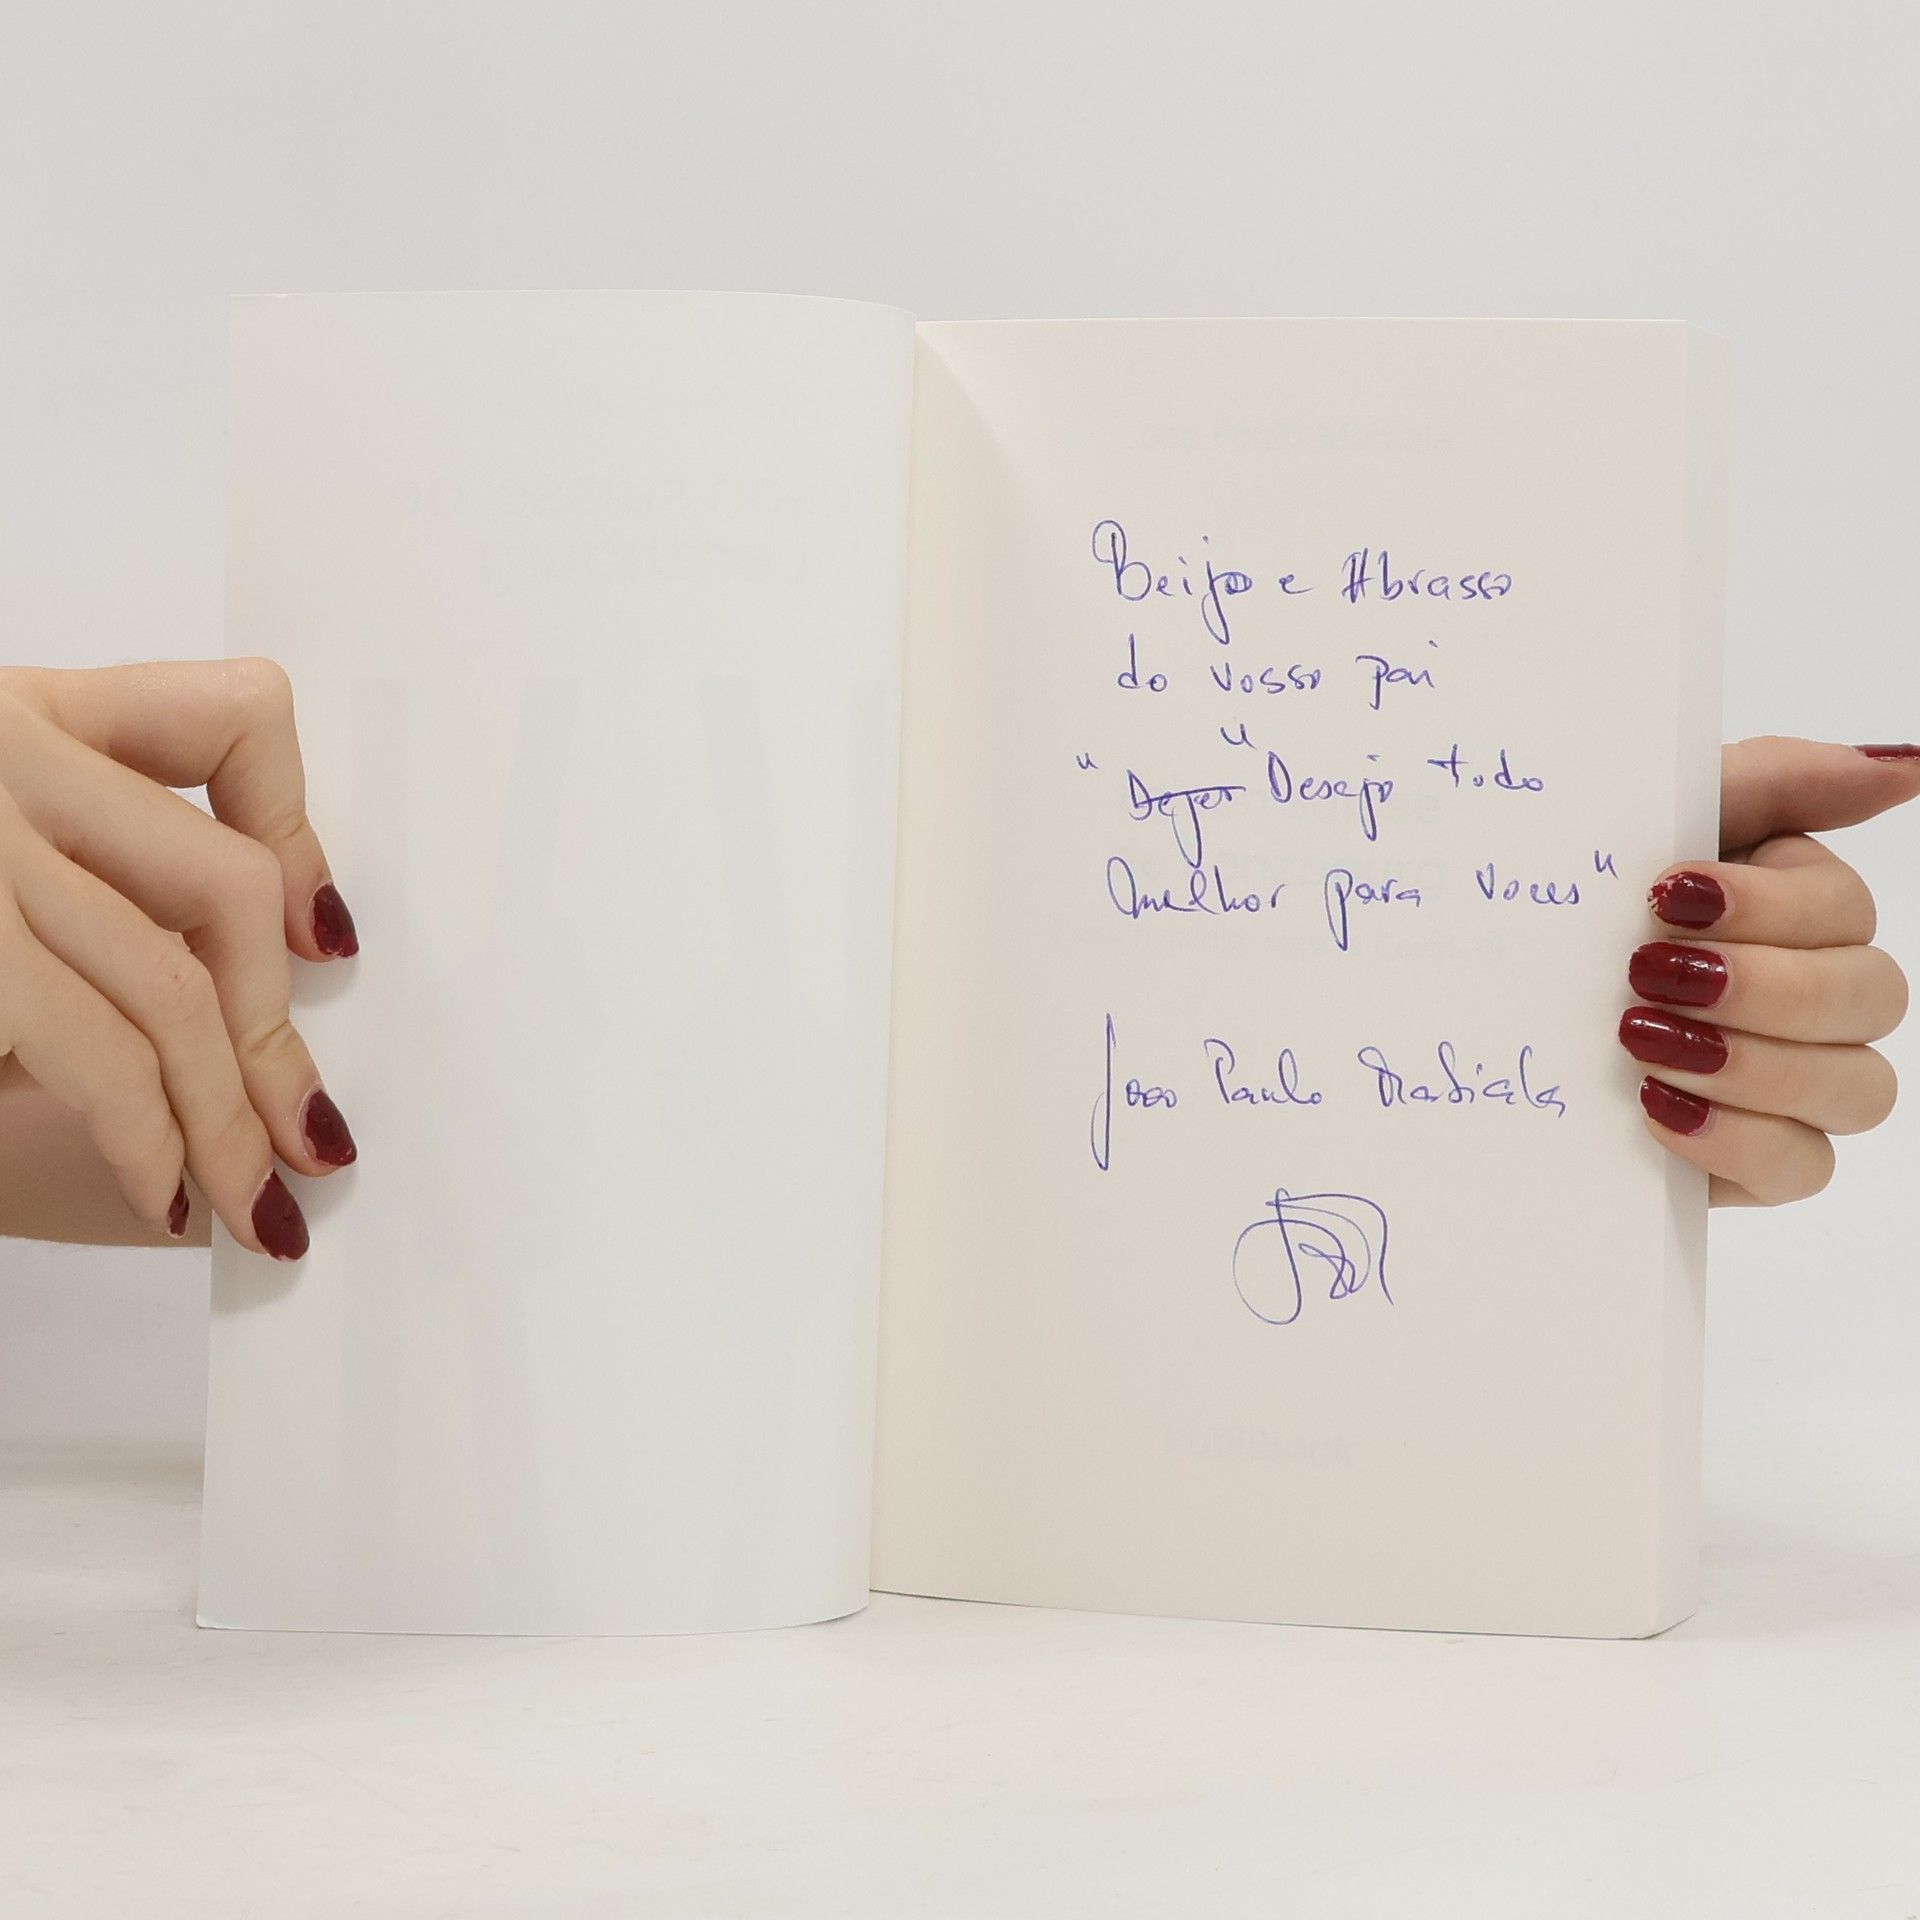 Beijo e Abrasso
do vosso pai
" Dejer " Desejo todo
melhor para voces"
Joao Paulo Matiala